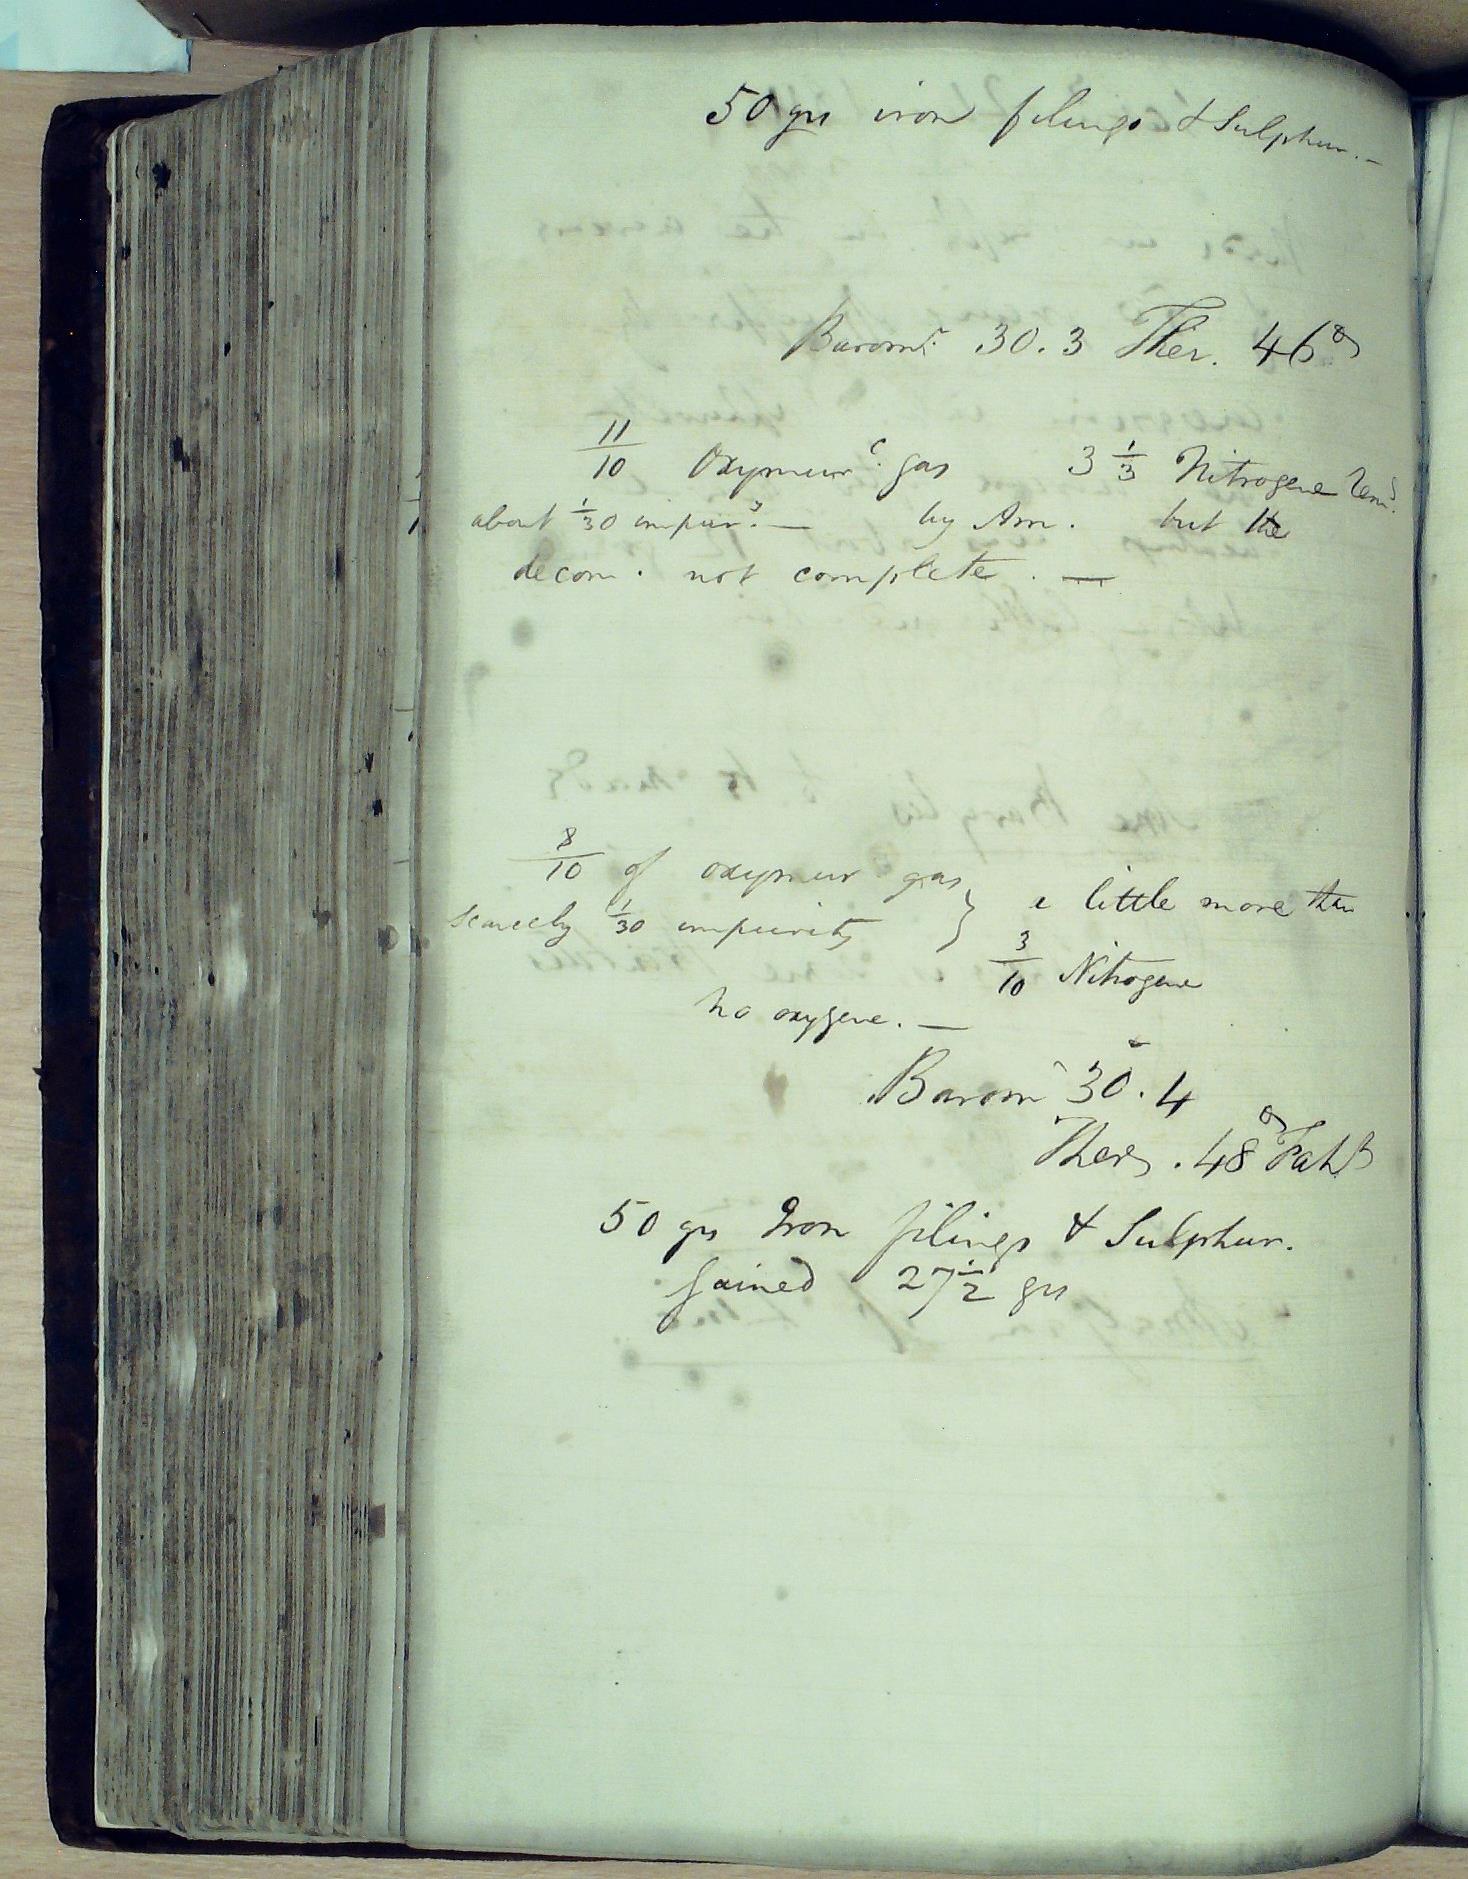 50 grs iron filings & Sulphur. -
Baromr. 30.3 Ther. 46°
11/10 Oxymurc. gas 3 1/3 Nitrogene
about 1/30 impur. — by Am. but the
decom. not complete. —
8/10 of oxymur gas } a little more than
scarcely 1/30 impurity 3/10 Nitrogene
no oxygene. —
Barom 30.4
Ther. 48° Faht
50 grs Iron filings & Sulphur.
gained 27 1/2 grs